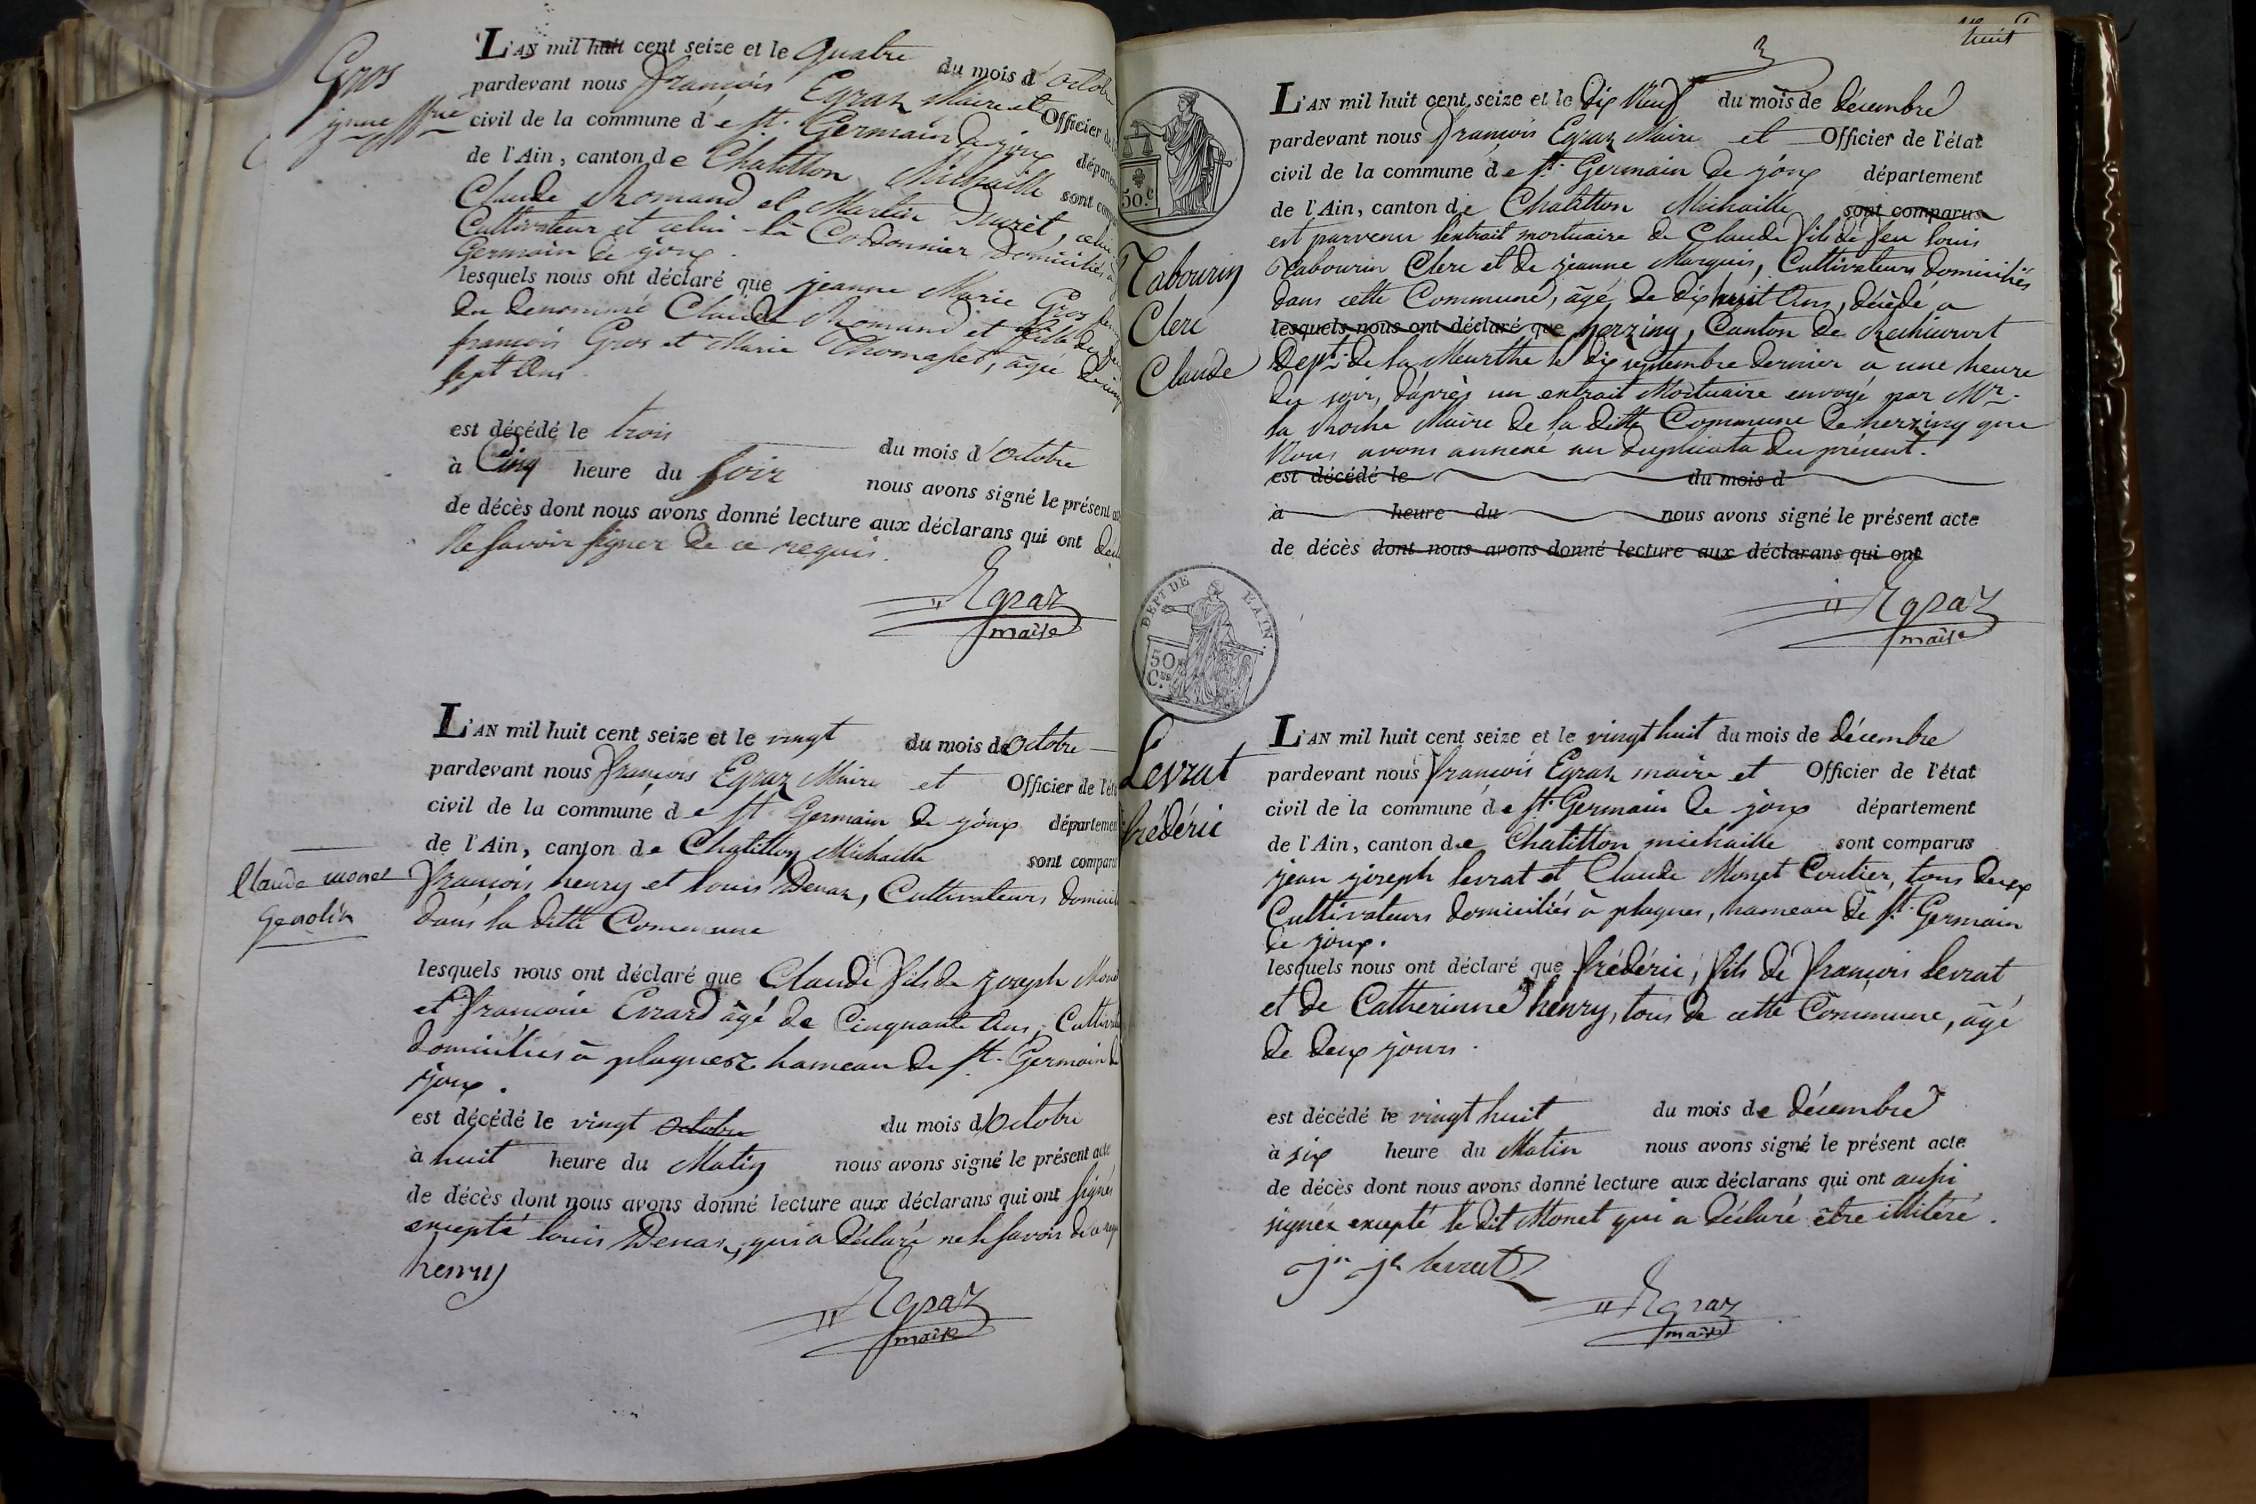 Gros
jnne Mie
L'AN mil huit cent seize et le quatre du mois d'octobre
pardevant nous françois Egraz Maire et Officier de l'
civil de la commune de st. Germain de joux départem
de l'Ain, canton de Chatillon Michaille sont comp
Claude Romand et Martin Duret, celui
Cultivateur et celui-là Cordonnier domiciliés à
Germain de joux.
lesquels nous ont déclaré que jeanne Marie Gros
du denommé Claude Romand et fille de
françois Gros et Marie Thomasset, âgée de
sept ans.
est décédé le trois du mois d'octobre
à Cinq heure du soir nous avons signé le présent ac
de décès dont nous avons donné lecture aux déclarans qui ont décl
Ne savoir signer de ce requis.
Egraz
maire
Claude monet
Genolin
L'AN mil huit cent seize et le vingt du mois de octobre
pardevant nous françois Egraz Maire et Officier de l'éta
civil de la commune de st Germain de joux département
de l'Ain, canton de Chatillon Michaille sont comparus
françois henry et louis Devaz, Cultivateurs domicil
dans la ditte Commune
lesquels nous ont déclaré que Claude fils de joseph Mone
et françoise Evrard âgé de Cinquante ans, Cultiv
domiciliés à plagnes hameau de st. Germain de
joux.
est décédé le vingt octobre du mois d'octobre
à huit heure du Matin nous avons signé le présent acte
de décès dont nous avons donné lecture aux déclarans qui ont signés
excepté louis Devaz, qui a déclaré ne le savoir de ce requ
henry
Egraz
maire
huit
50.c
Tabourin
Clerc
Claude
L'AN mil huit cent seize et le dix Neuf du mois de décembre
pardevant nous françois Egraz Maire et Officier de l'état
civil de la commune de st. Germain de joux département
de l'Ain, canton de Chatillon Michaille sont comparus
est parvenu l'extrait mortuaire de Claude fils de feu louis
Tabourin Clerc et de jeanne Marquis, Cultivateurs domiciliés
dans cette Commune, âgé de dix huit Ans, décédé a
lesquels nous ont déclaré que herzing, Canton de Réchicourt
Dept. de la Meurthe le dix septembre dernier a une heure
du soir, d'après un extrait Mortuaire envoyé par Mr.
la Roche Maire de la ditte Commune de herzing que
Nous avons annexé au duplicata du présent.
est décédé le du mois d
à heure du nous avons signé le présent acte
de décès dont nous avons donné lecture aux déclarans qui ont
Egraz
maire
DEPT DE L'AIN.
50 Cmes
Levrat
frédéric
L'AN mil huit cent seize et le vingt huit du mois de décembre
pardevant nous françois Egraz maire et Officier de l'état
civil de la commune de st. Germain de joux département
de l'Ain, canton de Chatillon michaille sont comparus
jean joseph levrat et Claude Monet Coutier, tous deux
Cultivateurs domiciliés à plagnes, hameau de st. Germain
de joux.
lesquels nous ont déclaré que frédéric, fils de françois levrat
et de Catherinne henry, tous de cette Commune, âgé
de deux jours.
est décédé le vingt huit du mois de décembre
à six heure du Matin nous avons signé le présent acte
de décès dont nous avons donné lecture aux déclarans qui ont aussi
signés excepté le dit Monet qui a déclaré être illitéré.
jn jh levrat
Egraz
maire